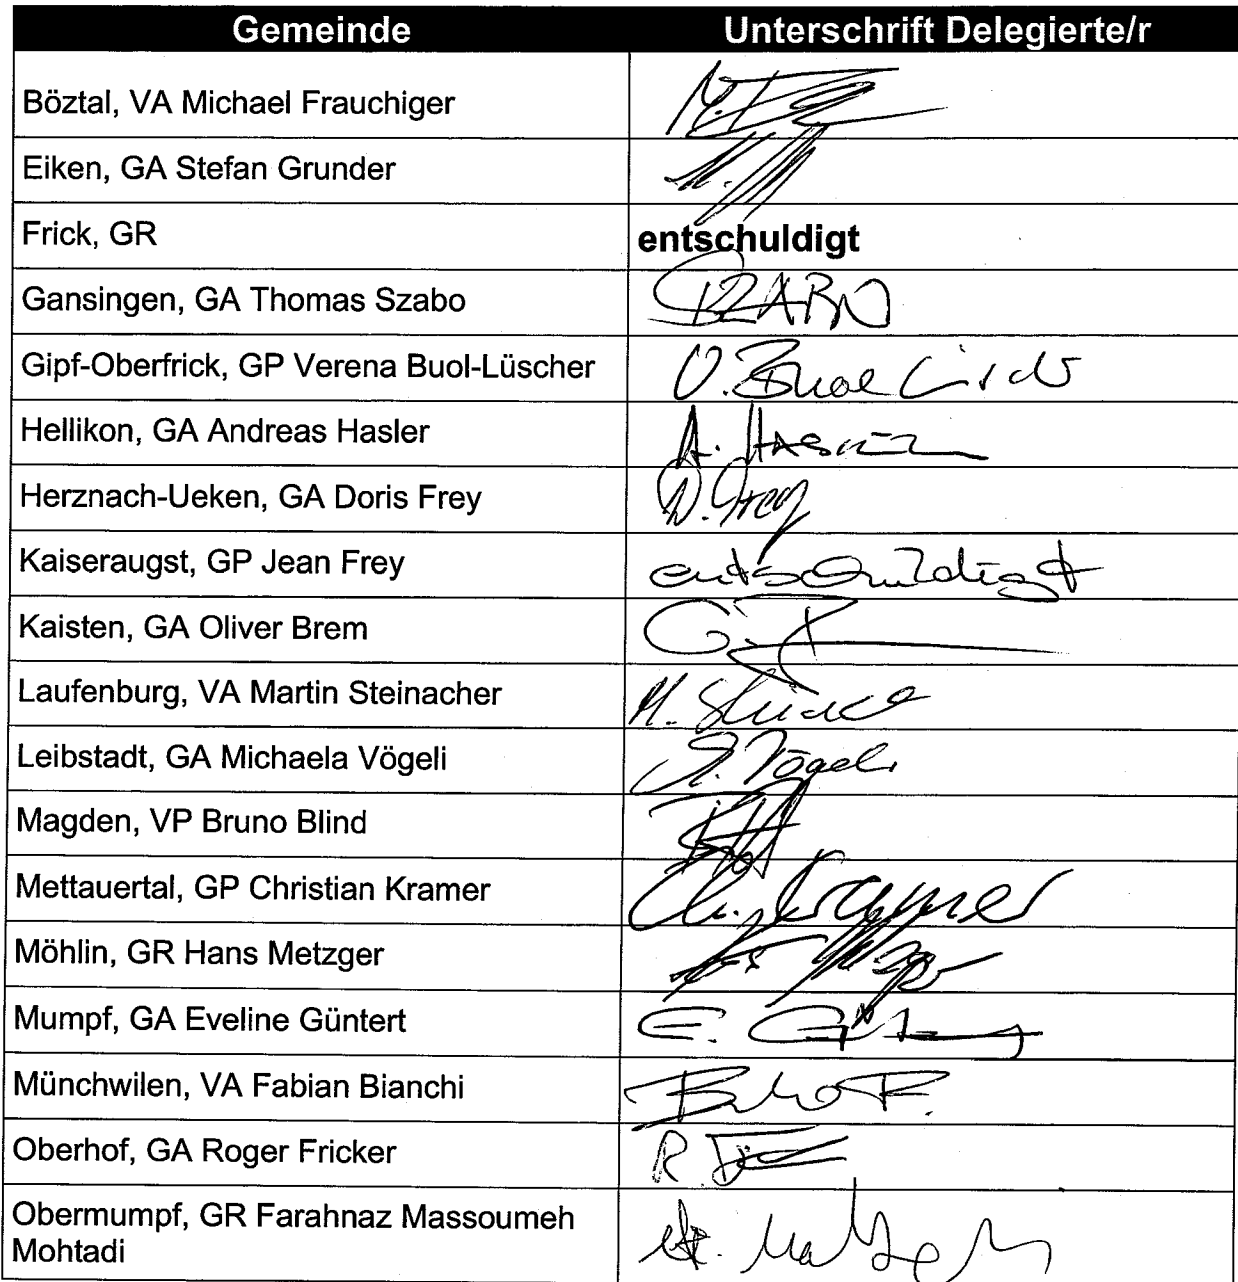 Gemeinde Unterschrift Delegierte/r
Böztal, VA Michael Frauchiger
Eiken, GA Stefan Grunder
Frick, GR entschuldigt
Gansingen, GA Thomas Szabo SZABO
Gipf-Oberfrick, GP Verena Buol-Lüscher V. Buol
Hellikon, GA Andreas Hasler A. HASLER
Herznach-Ueken, GA Doris Frey D. Frey
Kaiseraugst, GP Jean Frey entschuldigt
Kaisten, GA Oliver Brem
Laufenburg, VA Martin Steinacher M.
Leibstadt, GA Michaela Vögeli Vögeli
Magden, VP Bruno Blind
Mettauertal, GP Christian Kramer Ch. Kramer
Möhlin, GR Hans Metzger
Mumpf, GA Eveline Güntert E.
Münchwilen, VA Fabian Bianchi F.
Oberhof, GA Roger Fricker R.
Obermumpf, GR Farahnaz Massoumeh
Mohtadi